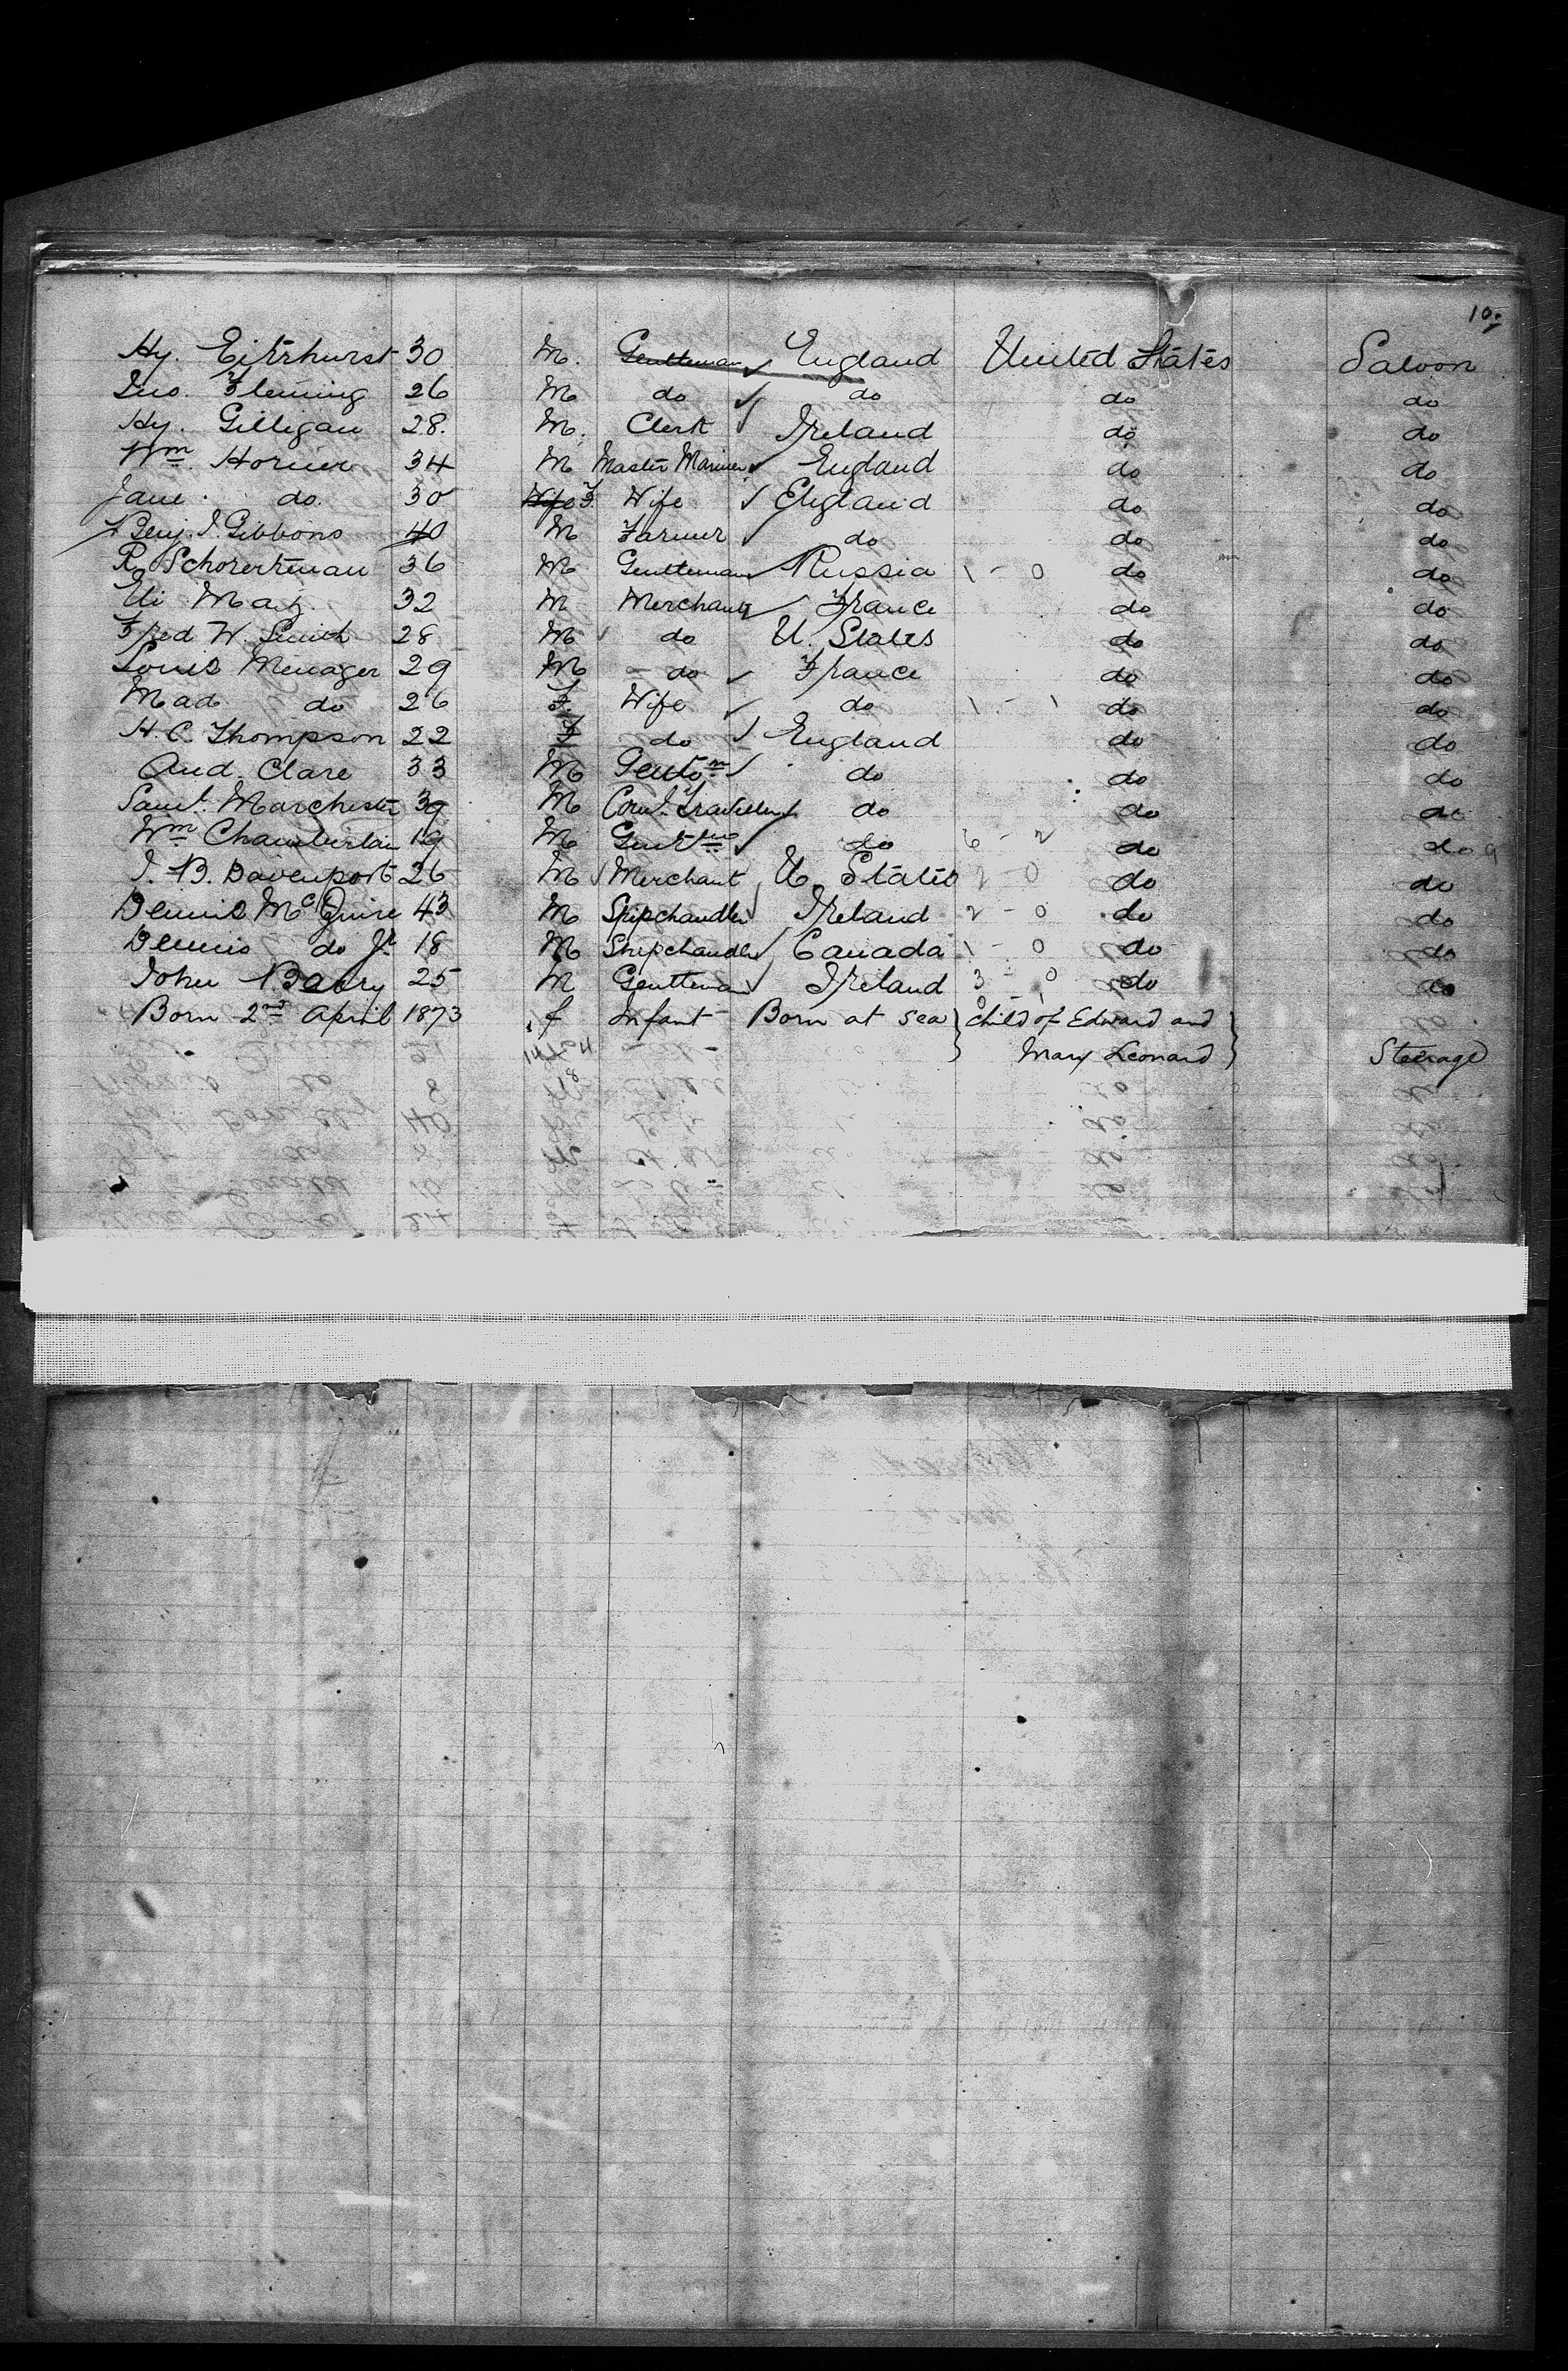 10.
Hy. Eitrhurst 30 M. Gentleman England United States Saloon
Jno. Fleming 26 M do do do do
Hy. Gilligan 28. M. Clerk Ireland do do
Wm. Horner 34 M Master Mariner England do do
Jane do. 30 Wife F. Wife England do do
Benj. J. Gibbons 40 M Farmer do do do
R. 36 M Gentleman Russia 1 - 0 do do
Eli 32 M Merchant France do do
Fred W. Smith 28 M do U. States do do
Louis Menager 29 M do France do do
Mad do 26 F. Wife do 1 - 1 do do
H. C. Thompson 22 F do England do do
And. Clare 33 M Gentn do do do
Saml. Marchester 39 M Coml. Traveller do do do
Wm Chamberlain 19 M do 6 - 2 do do
J. B. Davenport 26 M Merchant U. States 2 - 0 do do
Dennis McGuire 43 M Shipchandler Ireland 2 - 0 do do
Dennis do Jr. 18 M Shipchandler Canada 1 - 0 do do
John Barry 25 M Gentleman Ireland 3 - 0 do do
Born 2nd April 1873 f Infant Born at sea child of Edward and
Mary Leonard Steerage